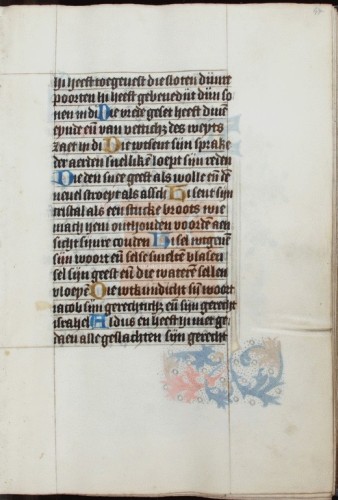 hi heeft toegeuest die sloten dijnre
poorten hi heeft gebenedijt dijn so
nen in di Die vrede geset heeft dijn
eynde eñ van vetticheẏ des weyts
zaet hi di Die wtsent sijn sprake
der aerden snellikē loept sijn reden
Die den snee geeft als wolle eñ dē
neuel stroeyt als asschē Hi sent sijn
cristal als een stucke broots wie
mach hem onthouden voordē aen
sicht sijnre couden Hi sel wtgeuē
sijn woort eñ selse smeltē blasen
sel sijn geest eñ die waterē sellen
vloeyē Die wtkundicht sijn woort
iacob sijn gerechticheẏ eñ sijn gerecht
israhel Aldus en heeft hi niet ge
daen alle geslachten sijn gerecht